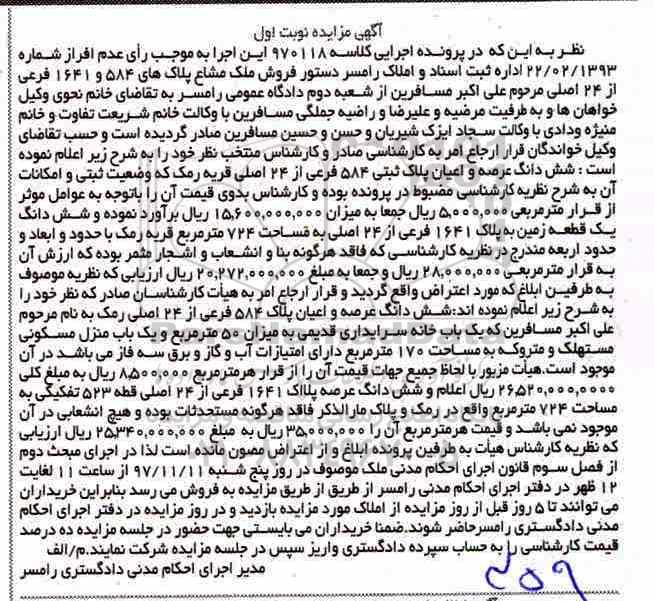 آگهی مزایده نوبت اول
نظر به این که در پرونده اجرایی کلاسه ۹۷۰۱۱۸ این اجرا به موجب رأی عدم افراز شماره
۲۲/۰۲/۱۳۹۳ اداره ثبت اسناد و املاک رامسر دستور فروش ملک مشاع پلاک های ۵۸۴ و ۱۶۴۱ فرعی
از ۲۴ اصلی مرحوم علی اکبر مسافرین از شعبه دوم دادگاه عمومی رامسر به تقاضای خانم نحوی وکیل
خواهان ها و به طرفیت مرضیه و علیرضا و راضیه جملگی مسافرین با وکالت خانم شریعت تفاوت و خانم
منیژه ودادی با وکالت سجاد ایزک شیریان و حسن و حسین مسافرین صادر گردیده است و حسب تقاضای
وکیل خواندگان قرار ارجاع امر به کارشناسی صادر و کارشناس منتخب نظر خود را به شرح زیر اعلام نموده
است : شش دانگ عرصه و اعیان پلاک ثبتی ۵۸۴ فرعی از ۲۴ اصلی قریه رمک که وضعیت ثبتی و امکانات
آن به شرح نظریه کارشناسی مضبوط در پرونده بوده و کارشناس بدوی قیمت آن را باتوجه به عوامل موثر
از قرار مترمربعی ۵,۰۰۰,۰۰۰ ریال جمعا به میزان ۱۵,۶۰۰,۰۰۰,۰۰۰ ریال برآورد نموده و شش دانگ
یک قطعه زمین به پلاک ۱۶۴۱ فرعی از ۲۴ اصلی به مساحت ۷۲۴ مترمربع قریه رمک با حدود و ابعاد و
حدود اربعه مندرج در نظریه کارشناسی که فاقد هرگونه بنا و انشعاب و اشجار مثمر بوده که ارزش آن
به قرار مترمربعی ۲۸,۰۰۰,۰۰۰ ریال و جمعا به مبلغ ۲۰,۲۷۲,۰۰۰,۰۰۰ ریال ارزیابی که نظریه موصوف
به طرفین ابلاغ که مورد اعتراض واقع گردید و قرار ارجاع امر به هیأت کارشناسان صادر که نظر خود را
به شرح زیر اعلام نموده اند:شش دانگ عرصه و اعیان پلاک ۵۸۴ فرعی از ۲۴ اصلی رمک به نام مرحوم
علی اکبر مسافرین که یک باب خانه سرایداری قدیمی به میزان ۵۰ مترمربع و یک باب منزل مسکونی
مستهلک و متروکه به مساحت ۱۷۰ مترمربع دارای امتیازات آب و گاز و برق سه فاز می باشد در آن
موجود است.هیأت مزبور با لحاظ جمیع جهات قیمت آن را از قرار هرمترمربع ۸,۵۰۰,۰۰۰ ریال به مبلغ کلی
۲۶,۵۲۰,۰۰۰,۰۰۰ ریال اعلام و شش دانگ عرصه پلااک ۱۶۴۱ فرعی از ۲۴ اصلی قطه ۵۲۳ تفکیکی به
مساحت ۷۲۴ مترمربع واقع در رمک و پلاک مارالذکر فاقد هرگونه مستحدثات بوده و هیچ انشعابی در آن
موجود نمی باشد و قیمت هرمترمربع آن را ۳۵,۰۰۰,۰۰۰ ریال به مبلغ ۲۵,۳۴۰,۰۰۰,۰۰۰ ریال ارزیابی
که نظریه کارشناس هیأت به طرفین پرونده ابلاغ و از اعتراض مصون مانده است لذا در اجرای مبحث دوم
از فصل سوم قانون اجرای احکام مدنی ملک موصوف در روز پنج شنبه ۹۷/۱۱/۱۱ از ساعت ۱۱ لغایت
۱۲ ظهر در دفتر اجرای احکام مدنی رامسر از طریق از طریق مزایده به فروش می رسد بنابراین خریداران
می توانند تا ۵ روز قبل از روز مزایده از املاک مورد مزایده بازدید و در روز مزایده در دفتر اجرای احکام
مدنی دادگستری رامسرحاضر شوند.ضمنا خریداران می بایستی جهت حضور در جلسه مزایده ده درصد
قیمت کارشناسی را به حساب سپرده دادگستری واریز سپس در جلسه مزایده شرکت نمایند.م/الف
مدیر اجرای احکام مدنی دادگستری رامسر